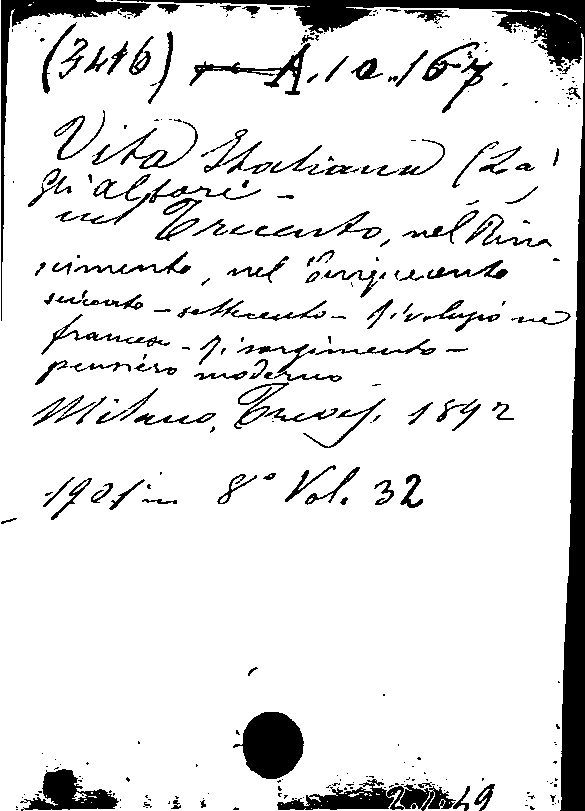 (3416) A.10.167.
Vita Italiana (La)
gli albori -
nel Trecento, nel Rina
scimento, nel Cinquecento
seicento - settecento - Rivoluzione
francese - Risorgimento -
pensiero moderno
Milano, Treves, 1892
1901 in 8° Vol. 32